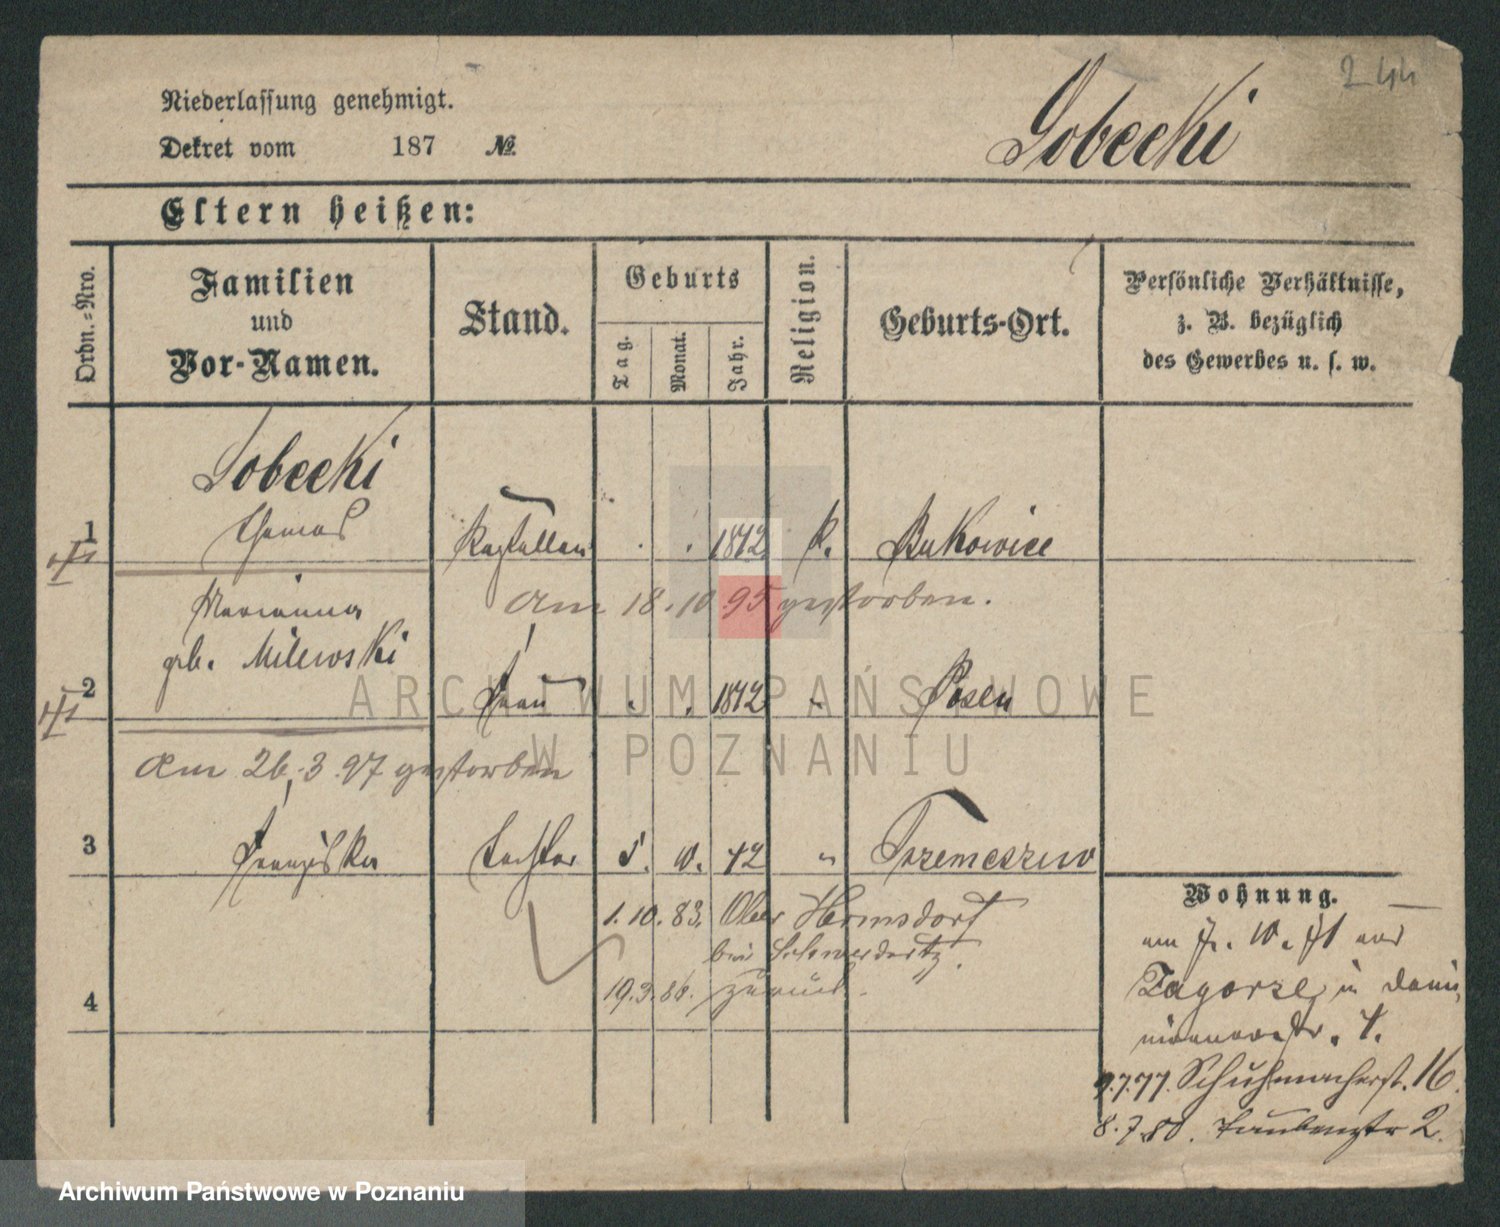 244
Niederlassung genehmigt.
Dekret vom 187 №
Sobecki
Eltern heißen:
Ordn.-Nro.
Familien
und
Vor-Namen.
Stand.
Geburts
Tag.
Monat.
Jahr.
Religion.
Geburts-Ort.
Persönliche Verhältnisse,
z. B. bezüglich
des Gewerbes u. s. w.
Sobecki
1 Thomas Kastellan 1842 k. Bukowice
am 18.10.95 gestorben.
Marianna
geb. Milewski
2 Frau 1842 " Posen
am 26.3.97 gestorben
3 Franziska Tochter 5. 10. 72 " Trzemeszno
1.10.83. Ober Hermsdorf
bei
19.3.86. zurück.
4
Wohnung.
am 10. 71 aus
Zagorze in
4.
9.7.77. Schuhmacherst. 16.
8.7.80. Taubenstr 2.
ARCHIWUM PAŃSTWOWE
W POZNANIU
Archiwum Państwowe w Poznaniu